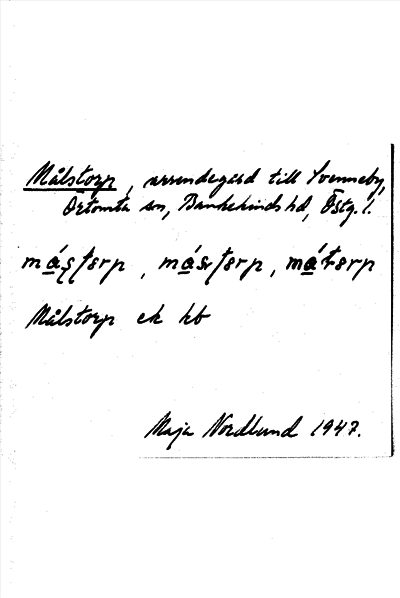 Målstorp, arrendegård till Svenneby,
Örtomta sn, Bankekinds hd, Östg. l.
Målstorp ek hb
Maja Nordlund 1947.